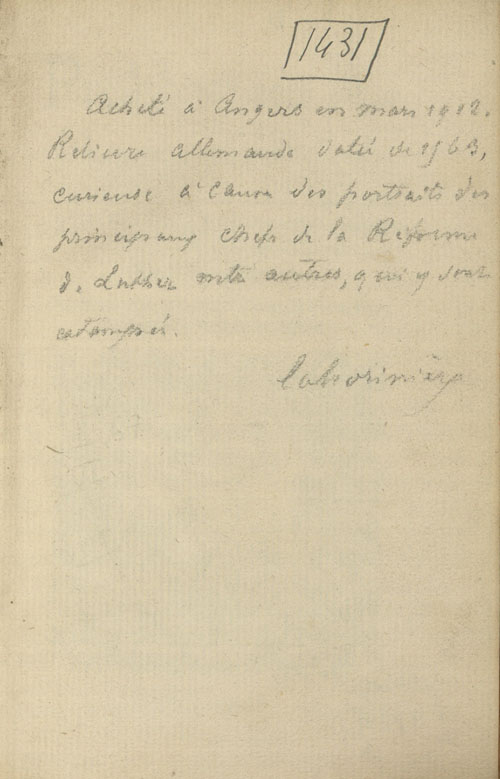 1431
Acheté à Angers en mars 1912.
Reliure allemande datée de 1563,
curieuse à cause des portraits des
principaux chefs de la Réforme
de Luther entre autres, qui y sont
estampés.